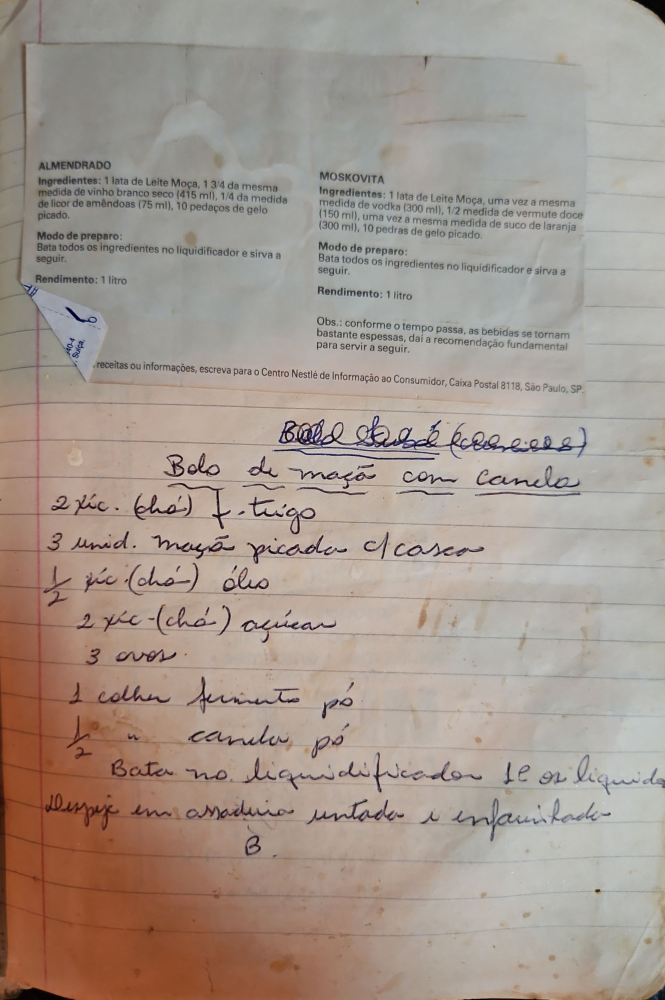 ALMENDRADO
Ingredientes: 1 lata de Leite Moça, 1 3/4 da mesma
medida de vinho branco seco (415 ml), 1/4 da medida
de licor de amêndoas (75 ml), 10 pedaços de gelo
picado.
Modo de preparo:
Bata todos os ingredientes no liquidificador e sirva a
seguir.
Rendimento: 1 litro
MOSKOVITA
Ingredientes: 1 lata de Leite Moça, uma vez a mesma
medida de vodka (300 ml), 1/2 medida de vermute doce
(150 ml), uma vez a mesma medida de suco de laranja
(300 ml), 10 pedras de gelo picado.
Modo de preparo:
Bata todos os ingredientes no liquidificador e sirva a
seguir.
Rendimento: 1 litro
Obs.: conforme o tempo passa, as bebidas se tornam
bastante espessas, daí a recomendação fundamental
para servir a seguir.
receitas ou informações, escreva para o Centro Nestlé de Informação ao Consumidor, Caixa Postal 8118, São Paulo, SP.
Bolo de maçã com canela
2 xíc. (chá) f. trigo
3 unid. maçã picada c/casca
1/2 xíc. (chá) óleo
2 xíc. (chá) açúcar
3 ovos.
1 colher fermento pó
1/2 " canela pó
Bata no liquidificador 1º os líquido
Despeje em assadeira untada e enfarinhada
B.